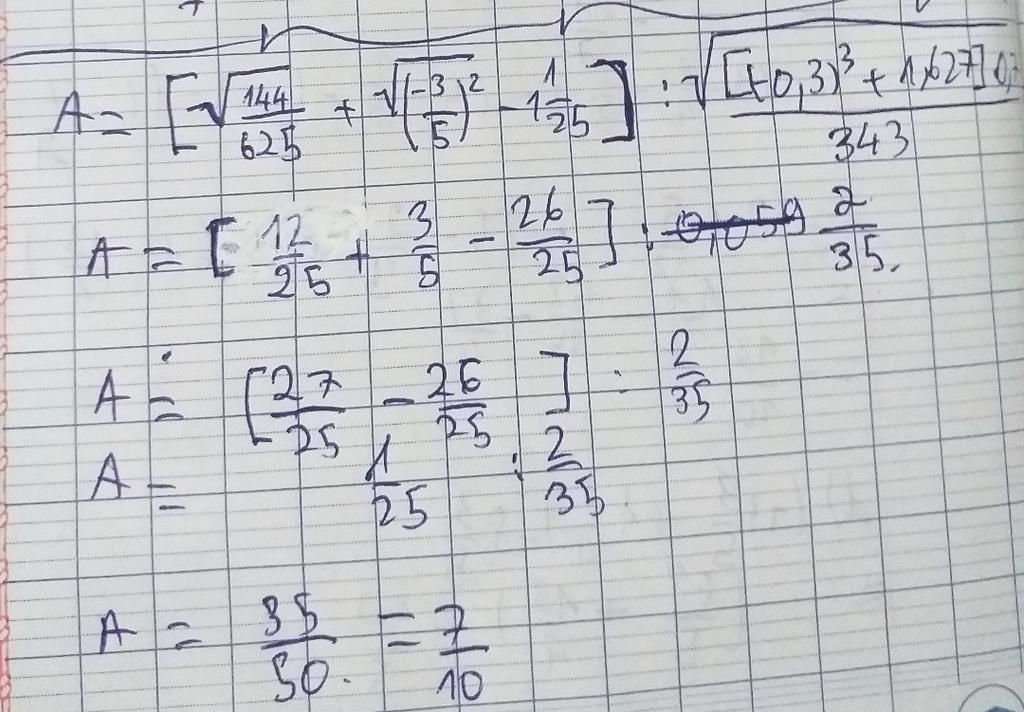 A = [√144/625 + √(-3/5)² - 1 1/25] : √[(-0,3)³ + 1,627] 0,7/343
A = [12/25 + 3/5 - 26/25] : 0,059 2/35.
A = [27/25 - 26/25] : 2/35
A = 1/25 : 2/35
A = 35/50. = 7/10